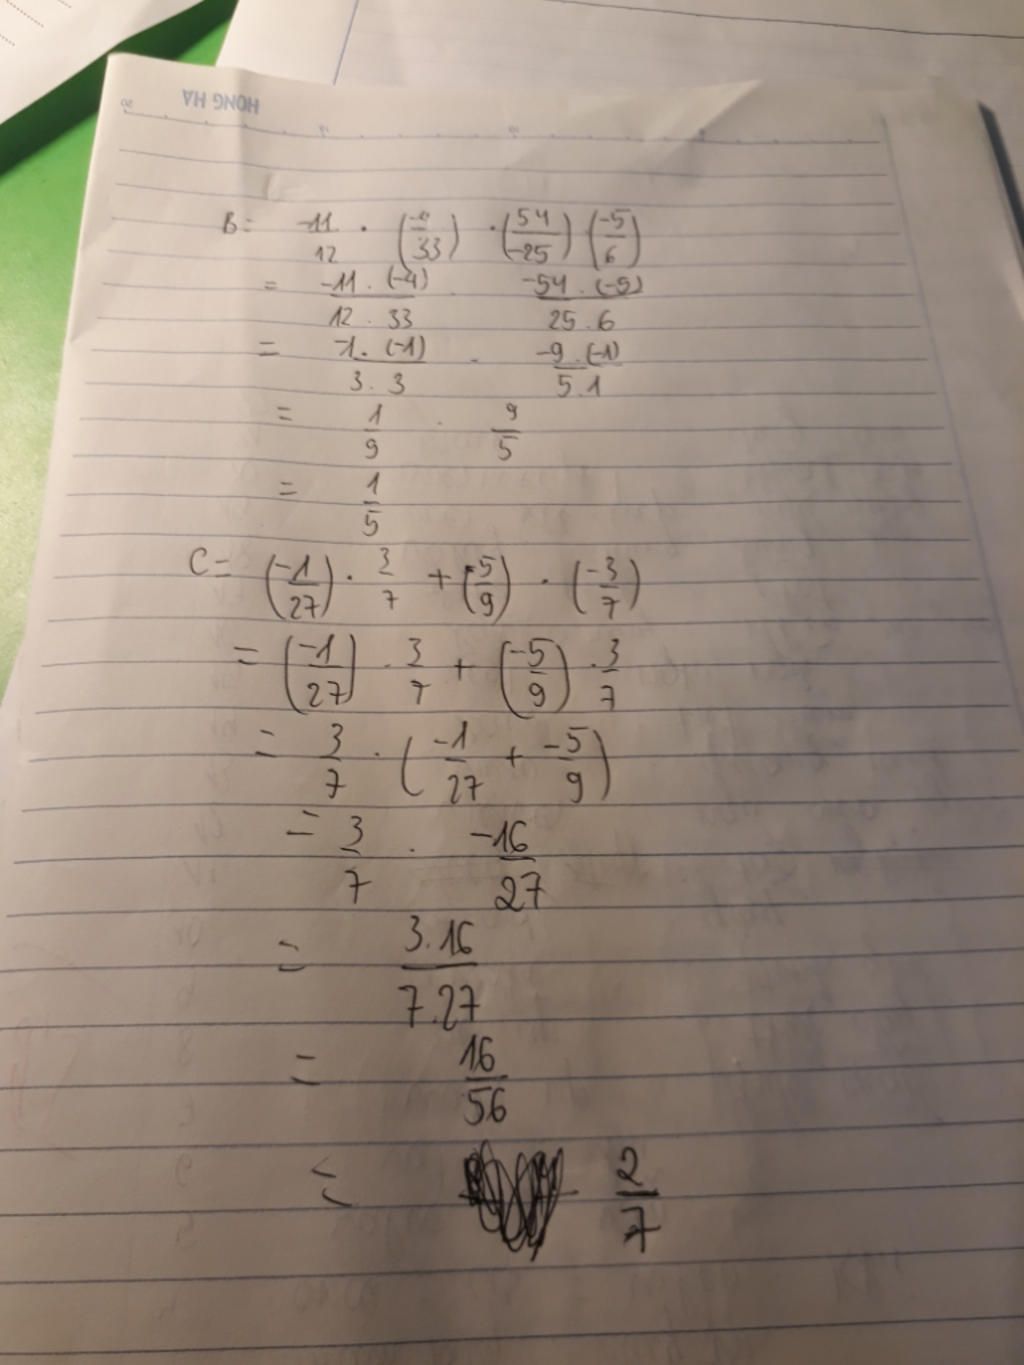 HONG HA
B = -11/12 . (-4/33) . (54/-25) . (-5/6)
= -11.(-4)/12.33 . -54.(-5)/25.6
= -1.(-1)/3.3 . -9.(-1)/5.1
= 1/9 . 9/5
= 1/5
C = (-1/27) . 3/7 + (-5/9) . (-3/7)
= (-1/27) . 3/7 + (-5/9) . 3/7
= 3/7 . (-1/27 + -5/9)
= 3/7 . -16/27
= 3.16/7.27
= 16/56
= 2/7